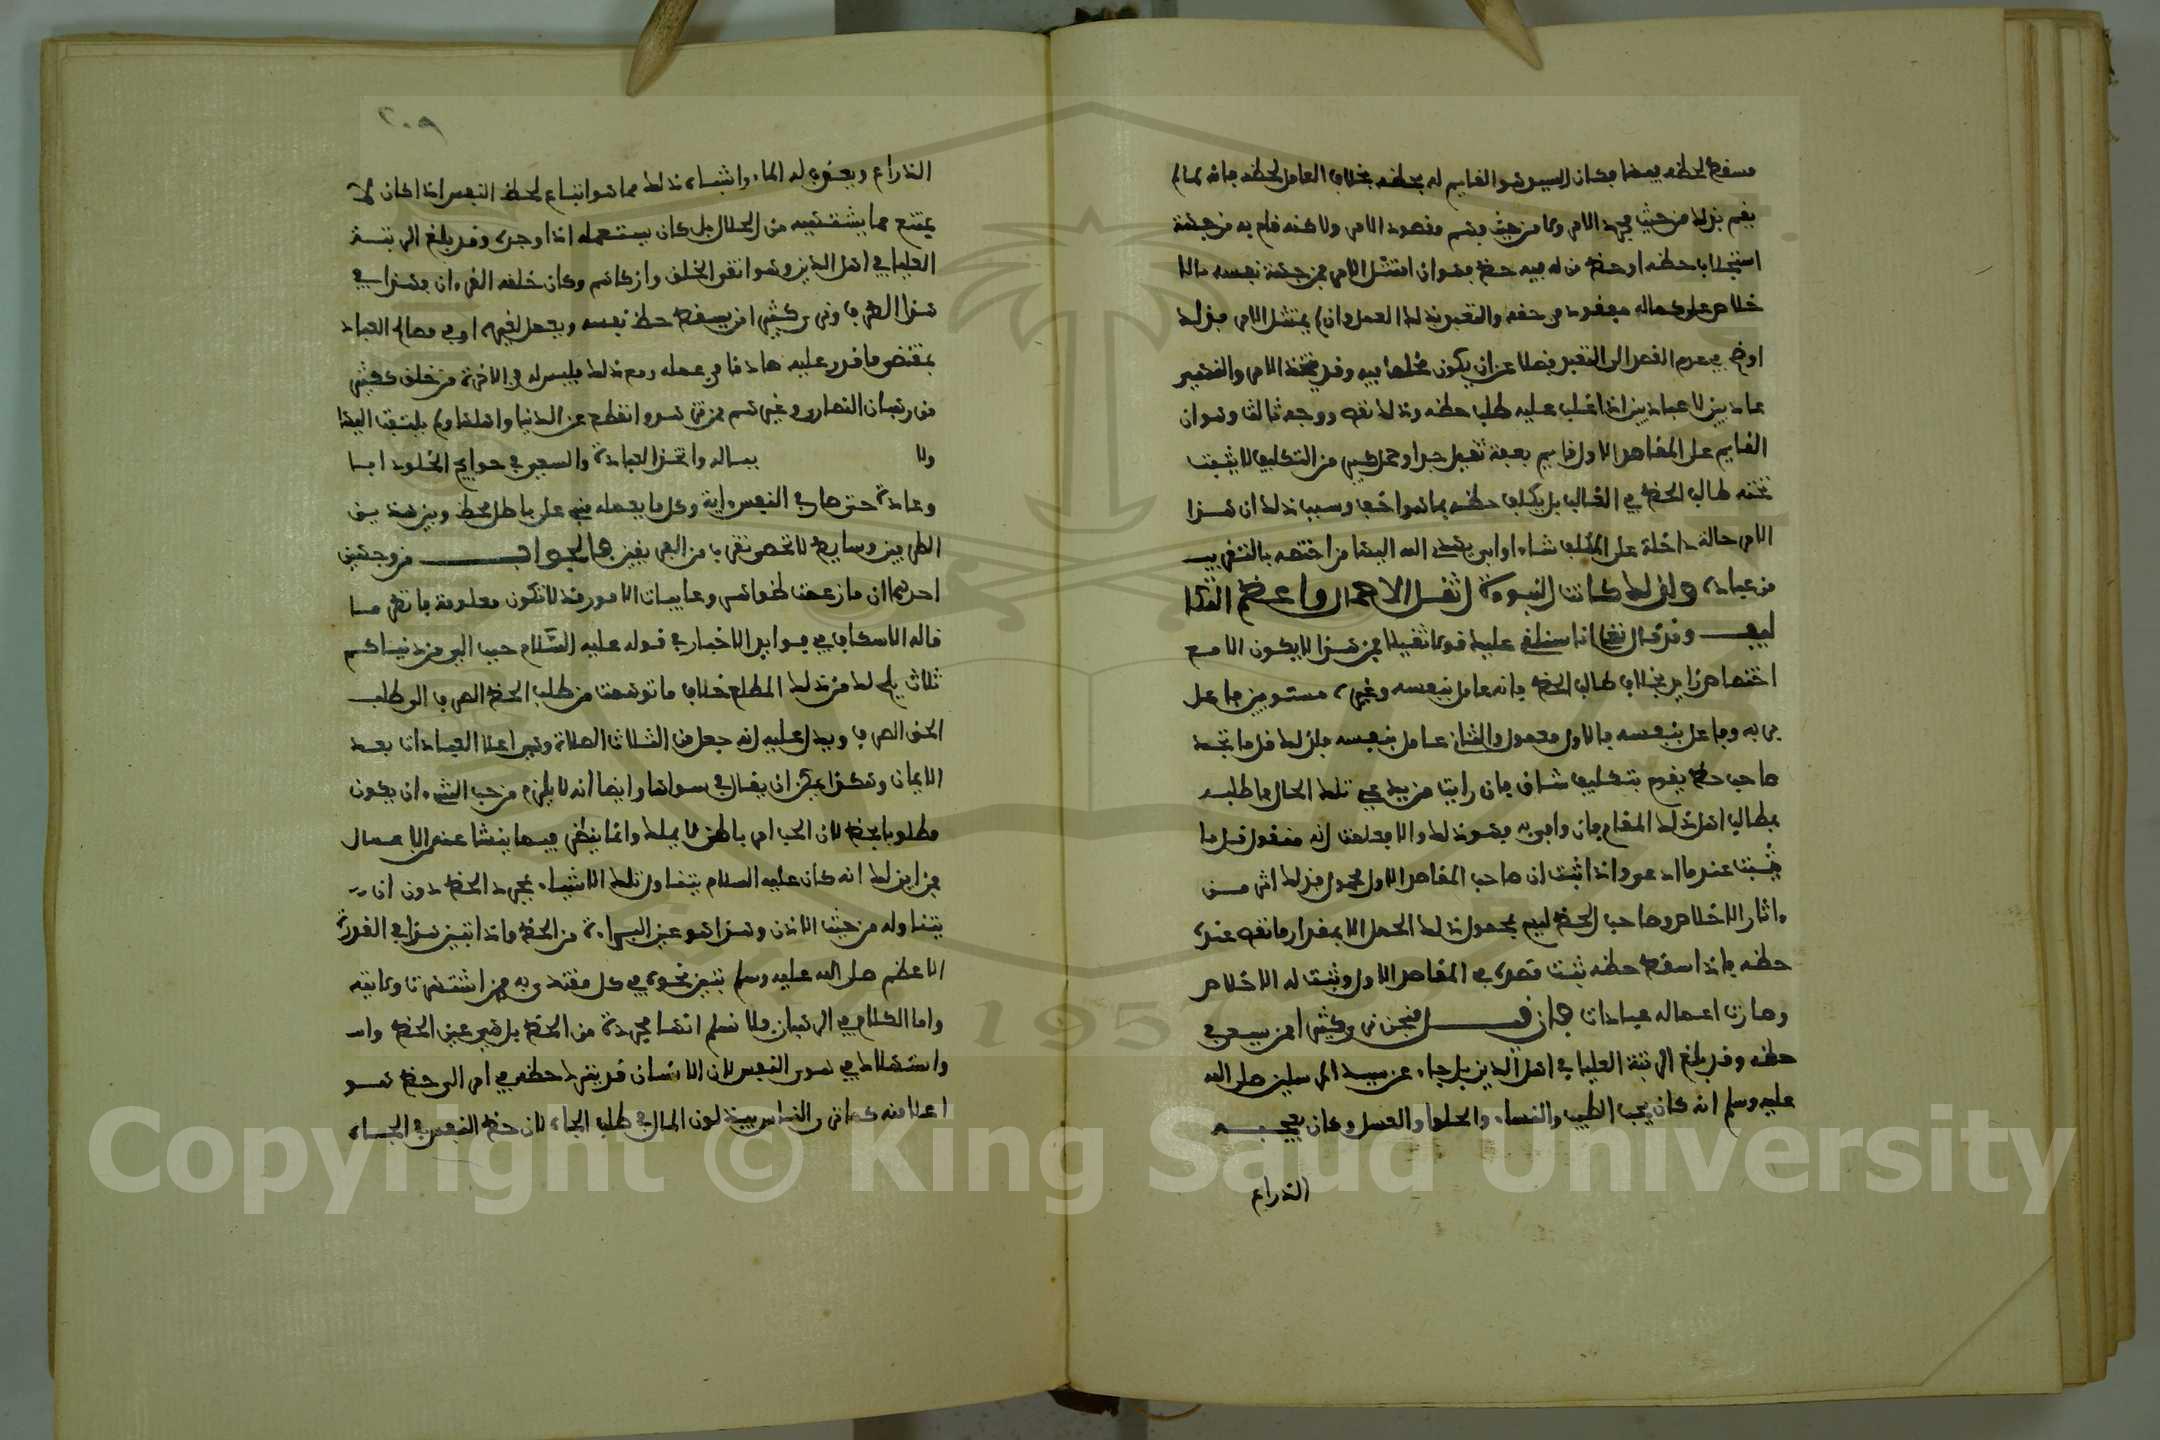 مسقط لحظه فيها فكان السيد هو القايم له بحظه بخلاف العامل لحظه فانه لما لم
يقم بذلك من حيث مجرد الامر ولا من حيث فهم مقصود الامر ولاكنه قام به من جهة
استجلاب حظه او حظ من له فيه حظ فهو ان امتثل الامر فمن جهة نفسه فالا
خلاص على كماله مفقود في حقه والتعبد بذلك العمل وان لم يمتثل الامر فذلك
اوضح في عدم القصد الى التعبد فضلا عن ان يكون مخلصا فيه وقد يتخذ الامر والنهي
عاديين لا عباديين اذا غلب عليه طلب حظه وذلك نقص ووجه ثالث وهو ان
القايم على المقاصد الاول قايم بعبء ثقيل جدا وحمل كبير من التكليف لا يثبت
تحته طالب الحظ في الغالب بل يطلب حظه بما هو اخف وسبب ذلك ان هذا
الامر حالة داخلة على المكلف شاء او ابى يهدي الله اليها من اختصه بالتقريب
من عباده ولذلك كانت النبوءة اثقل الاحمال واعظم التكا
ليف وقد قال تعلى انا سنلقي عليك قولا ثقيلا فمن هذا لا يكون الا مع
اختصاص زايد بخلاف طالب الحظ فانه عامل بنفسه وغير مستويين فاعل
بربه وفاعل بنفسه فالاول محمول والثاني عامل بنفسه فلذلك قل ما تجد
صاحب حظ يقوم بتكليف شاق فان رايت من يدعي تلك الحال فاطلبه
بمطالب اهل ذلك المقام فان وافى به فهو ذلك والا فاعلم انه متقول قل ما
يثبت عند ما ادعى واذا ثبت ان صاحب المقاصد الاول محمول فذلك اثر من
ءاثار الاخلاص وصاحب الحظ ليس بمحمول ذلك الحمل الا بمقدار ما نقص عنده
حظه فاذا سقط حظه ثبت قصده في المقاصد الاول وثبت له الاخلاص
وصارت اعماله عبادات فان قيل فنحن نرى كثيرا ممن يسعى في
حظه وقد بلغ الرتبة العليا في اهل الدين بل جاء عن سيد المرسلين صلى الله
عليه وسلم انه كان يحب الطيب والنساء والحلوا والعسل وكان يعجبه
الذراع
٢٠٩
الذراع ويستعذب له الماء واشباه ذلك مما هو اتباع لحظ النفس اذ كان لا
يمتنع مما يشتهيه من الحلال بل كان يستعمله اذا وجده وقد بلغ الرتبة
العليا في اهل الدين وهو اتقى الخلق وازكاهم وكان خلقه القرءان فهذا في
هذا الطرف ونرى كثيرا ممن يسقط حظ نفسه ويعمل لغيره او في مصالح العباد
بمقتضى ما قدر عليه صادقا في عمله ومع ذلك فليس له في الاخرة من خلاق ككثير
من رهبان النصارى وغيرهم ممن تزهد وانقطع عن الدنيا واهلها ولم يلتفت اليها
ولا بباله واتخذ العبادة والسعي في حوايج الخلق دابا
وعادة حتى صار في الناس ءاية وكل ما يعمله مبني على باطل محض وبين هذين
الطرفين وسايط لا تحصى تقرب من الطرفين فالجواب من وجهين
احدهما ان ما زعمت ظواهر وغايبات الامور قد لا تكون معلومة فانظر ما
قاله الاسكاف في فوايد الاخبار في قوله عليه السلام حبب الي من دنياكم
ثلاث يلح لك من ذلك المطلع خلاف ما توهمت من طلب الحظ الصرف الى طلب
الحق الصرف ويدل عليه انه جعل من الثلاث الصلاة وهي اعلا العبادات بعد
الايمان وهكذا يمكن ان يقال في سواها وايضا انه لا يلزم من حب الشيء ان يكون
مطلوبا بحظ لان الحب امر باطن لا يملك وانما ينظر فيما ينشا عنه من الاعمال
فمن اين لك انه كان عليه السلام يتناول تلك الاشياء بمجرد الحظ دون ان
يتناوله من حيث الاذن وهذا هو عين البراءة من الحظ واذا تبين هذا في القدوة
الاعظم صلى الله عليه وسلم تبين نحوه في كل مقتدى به ممن اشتهرت ولايته
واما الكلام في الرهبان فلا نسلم انها مجردة من الحظ بل هي عين الحظ واس
واستهلاك في هوى النفس لان الانسان قد يترك حظه في امر الى حظ هو
اعلا منه كما ترى الناس يبذلون المال في طلب الجاه لان حظ النفس في الجاه